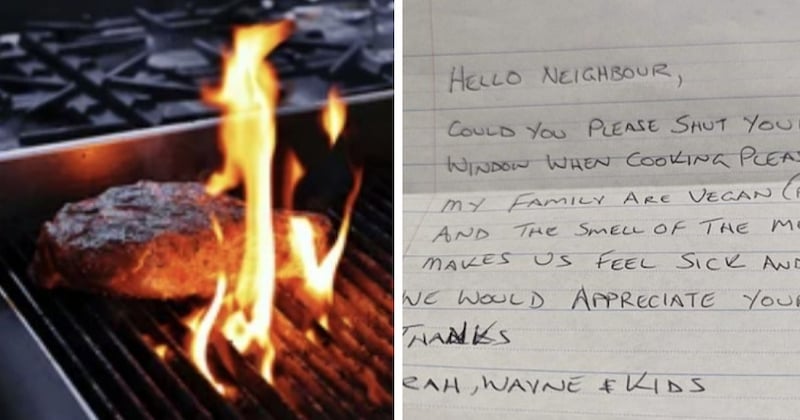 HELLO NEIGHBOUR,
COULD YOU PLEASE SHUT YOU
WINDOW WHEN COOKING PLEA
MY FAMILY ARE VEGAN (
AND THE SMELL OF THE M
MAKES US FEEL SICK AND
WE WOULD APPRECIATE YOU
THANKS
RAH, WAYNE & KIDS